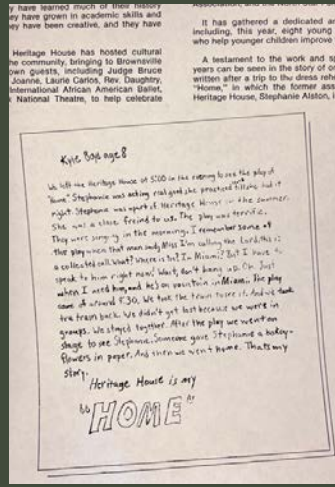 y have learned much of their history
ey have grown in academic skills and
ey have been creative, and they have
Heritage House has hosted cultural
he community, bringing to Brownsville
own guests, including Judge Bruce
Joanne, Laurie Carlos, Rev. Daughtry,
International African American Ballet,
National Theatre, to help celebrate
It has gathered a dedicated
including, this year, eight young
who help younger children improve
A testament to the work and
years can be seen in the story of
written after a trip to the dress
"Home," in which the former
Heritage House, Stephanie Alston,
Kyle Boyd age 8
We left the Heritage House at 5:00 in the evening to see the play of
"Home" Stephanie was acting real good she practiced till she had it
right. Stephanie was apart of Heritage House in the summer.
She was a close freind to us. The play was terrific.
They were singing in the morning. I remember some of
the play when that man said, Miss I'm calling the Lord, this is
a collected call. What? Where is he? In Miami? But I have to
speak to him right now! Wait, don't hang up. Oh Just
when I need him, and he's on vacation in Miami. The play
came of around 8:30. We took the train to see it. And we took
tea train back. We didn't get lost because we were in
groups. We stayed together. After the play we went on
stage to see Stephanie. Someone gave Stephanie
flowers in paper. And then we went home. Thats my
story.
Heritage House is my
"HOME"